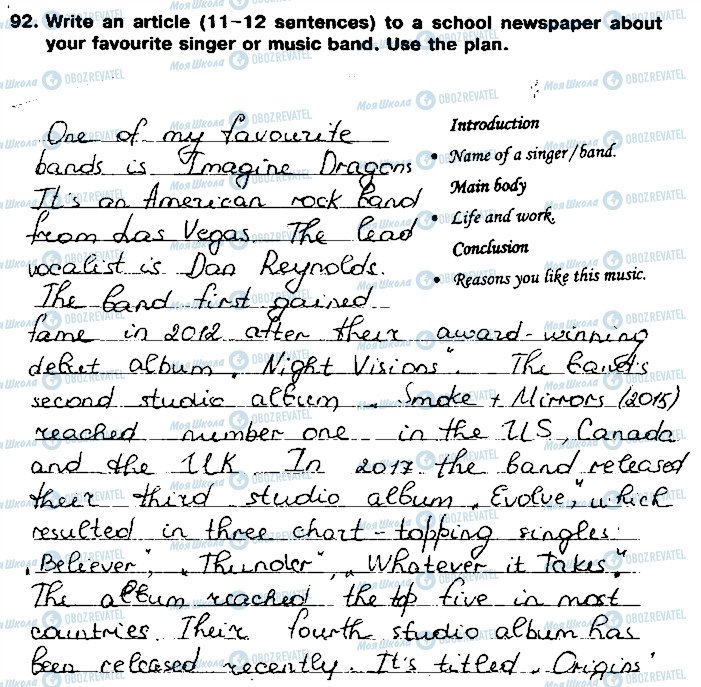 92. Write an article (11–12 sentences) to a school newspaper about
your favourite singer or music band. Use the plan.
Introduction
• Name of a singer/band.
Main body
• Life and work.
Conclusion
• Reasons you like this music.
One of my favourite
bands is Imagine Dragons
It's an American rock band
from Las Vegas. The lead
vocalist is Dan Reynolds.
The band first gained
fame in 2012 after their award-winning
debut album „Night Visions". The band's
second studio album „Smoke + Mirrors (2015)
reached number one in the US, Canada
and the UK. In 2017 the band released
their third studio album „Evolve", which
resulted in three chart-topping singles:
„Believer", „Thunder", „Whatever it Takes".
The album reached the top five in most
countries. Their fourth studio album has
been released recently. It's titled „Origins"
МояШкола OBOZREVATEL